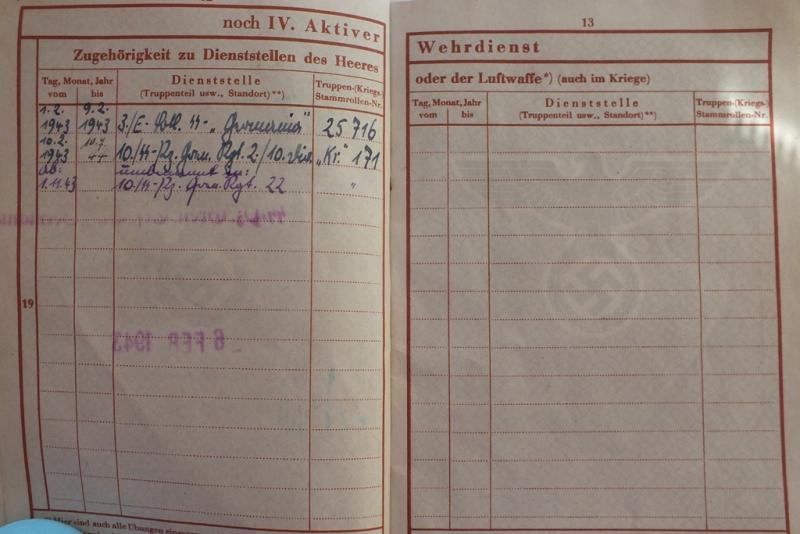 noch IV. Aktiver
Zugehörigkeit zu Dienststellen des Heeres
Tag, Monat, Jahr
vom bis
Dienststelle
(Truppenteil usw., Standort)**)
Truppen-(Kriegs-)
Stammrollen-Nr.
1.2. 9.2.
1943 1943 3./E- Btl. SS- „Germania" 25 716
10.2.
1943 44 10./SS-Pz. Gren. Rgt. 2/10. Div. „Kr." 171
ab: umbenannt in:
1.11.43 10./SS-Pz. Gren. Rgt. 22 "
19
6 FEB 1943
*) Hier sind auch alle Übungen
13
Wehrdienst
oder der Luftwaffe*) (auch im Kriege)
Tag, Monat, Jahr
vom bis
Dienststelle
(Truppenteil usw., Standort)**)
Truppen-(Kriegs-)
Stammrollen-Nr.